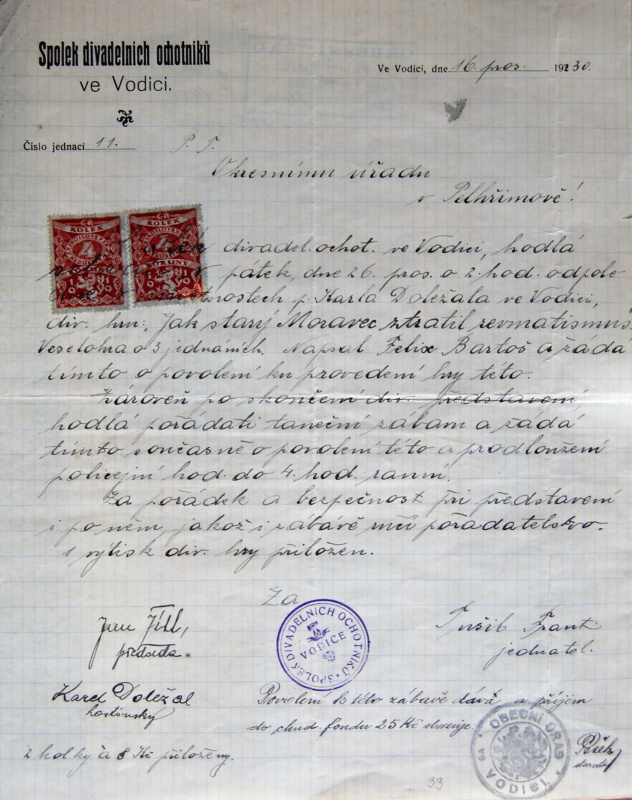 Spolek divadelních ochotníků
ve Vodici.
Ve Vodici, dne 16 pros. 1930.
Číslo jednací 11.
P. T.
Okresnímu úřadu
v Pelhřimově!
divadel. ochot. ve Vodici, hodlá
v pátek, dne 26. pros. o 2. hod. odpole
p. Karla Doležala ve Vodici,
div. hru: Jak starý Moravec ztratil revmatismus
Veselohra o 3 jednáních. Napsal Felix Bartoš a žádá
tímto o povolení ku provedení hry této.
Zároveň po skončení div. představení
hodlá pořádati taneční zábavu a žádá
tímto současně o povolení této a prodloužení
policejní hod. do 4. hod. ranní.
Za pořádek a bezpečnost při představení
i po něm, jakož i zábavě ručí pořadatelstvo.
1 výtisk div. hry přiložen.
Za
Jan
předseda.
SPOLEK DIVADELNÍCH OCHOTNÍKŮ
VODICE
Frant
jednatel.
Karel Doležal
hostinský
Povolení k této zábavě dává a příjem
do chud. fondu 25 Kč
2 kolky à 8 Kč přiloženy.
OBECNÍ ÚŘAD
VE VODICI
33
ČR
KOLEK
4
KORUNY
ČR
KOLEK
4
KORUNY